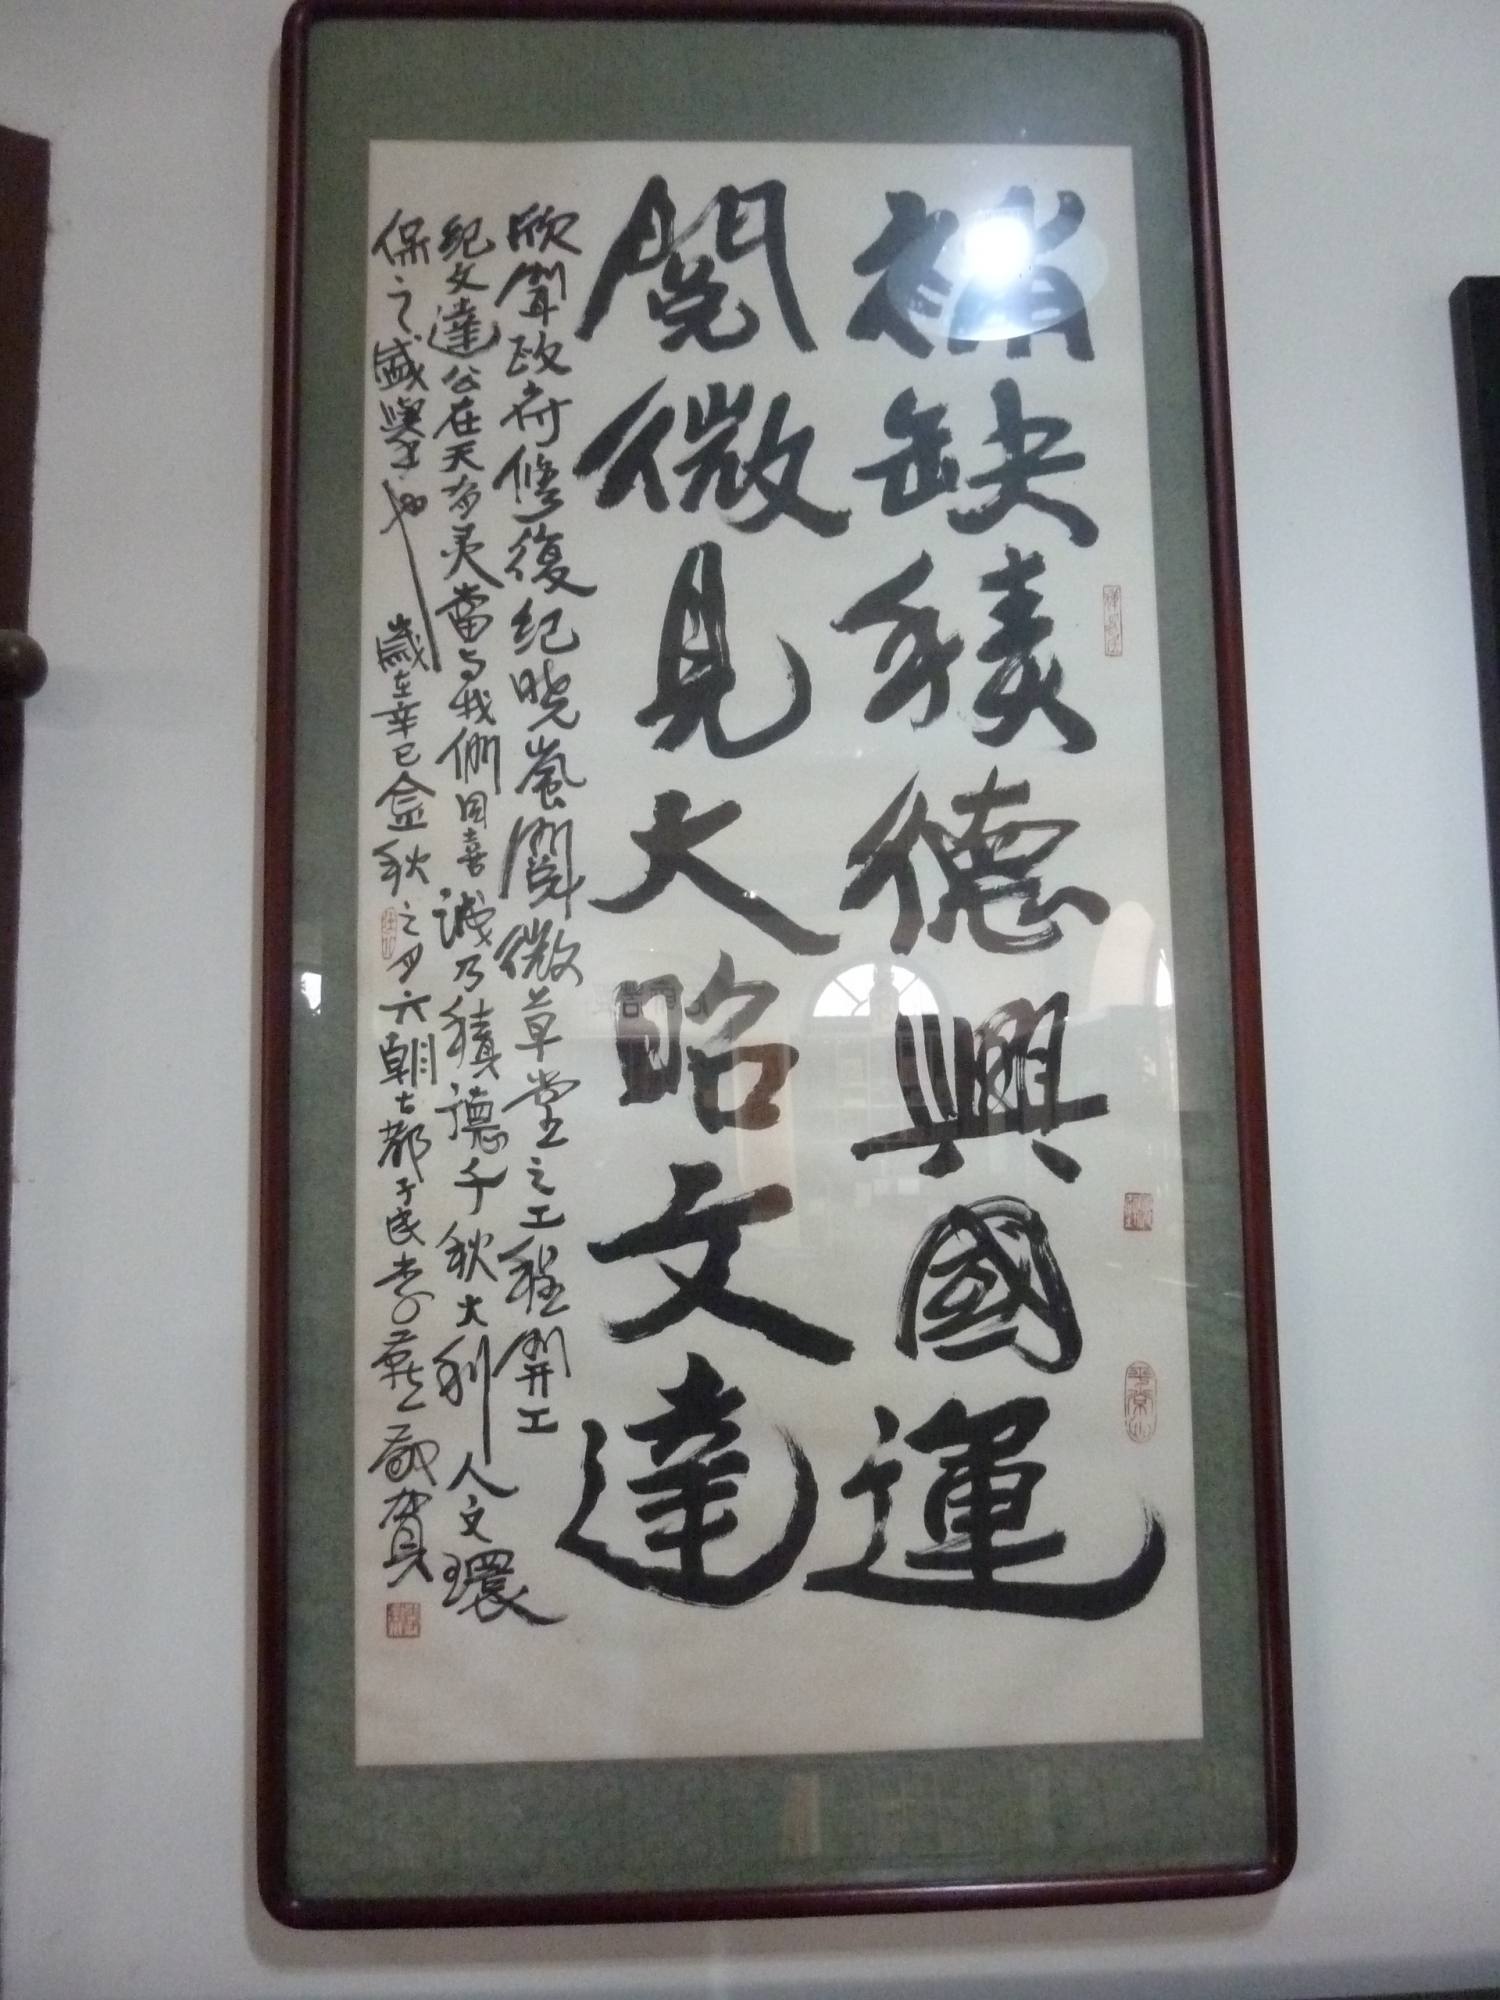 補缺積德興國運
閱微見大昭文達
欣聞政府修復纪晓嵐閱微草堂之工程開工
纪文達公在天有灵當与我們同喜誠乃積德千秋大利人文環
保之盛舉也 歲在辛巳金秋之月六朝古都子民李燕敬賀